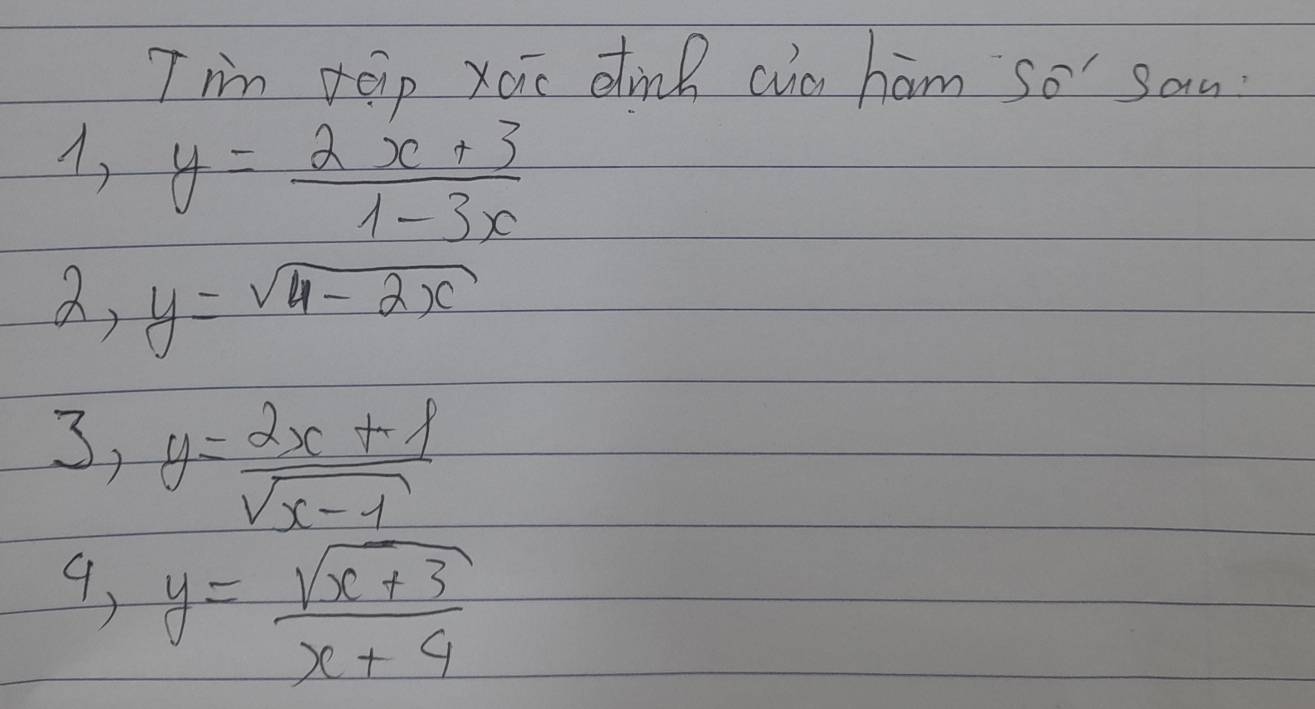 Tìm tập xác định của hàm số sau:
1, y = \frac{2x + 3}{1 - 3x}
2, y = \sqrt{4 - 2x}
3, y = \frac{2x + 1}{\sqrt{x - 1}}
4, y = \frac{\sqrt{x + 3}}{x + 4}